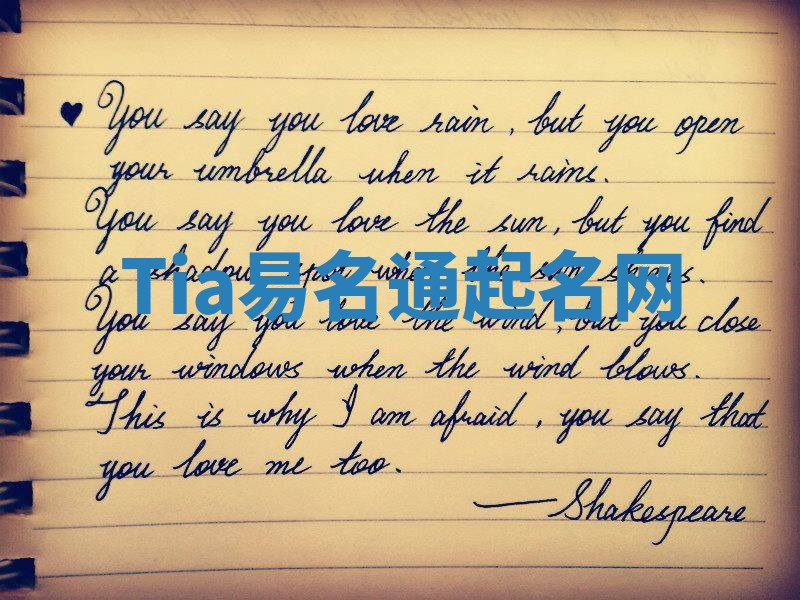 You say you love rain, but you open
your umbrella when it rains.
You say you love the sun, but you find
a shadow spot when the sun shines.
Tia易名通起名网
You say you love the wind, but you close
your windows when the wind blows.
This is why I am afraid, you say that
you love me too.
—Shakespeare